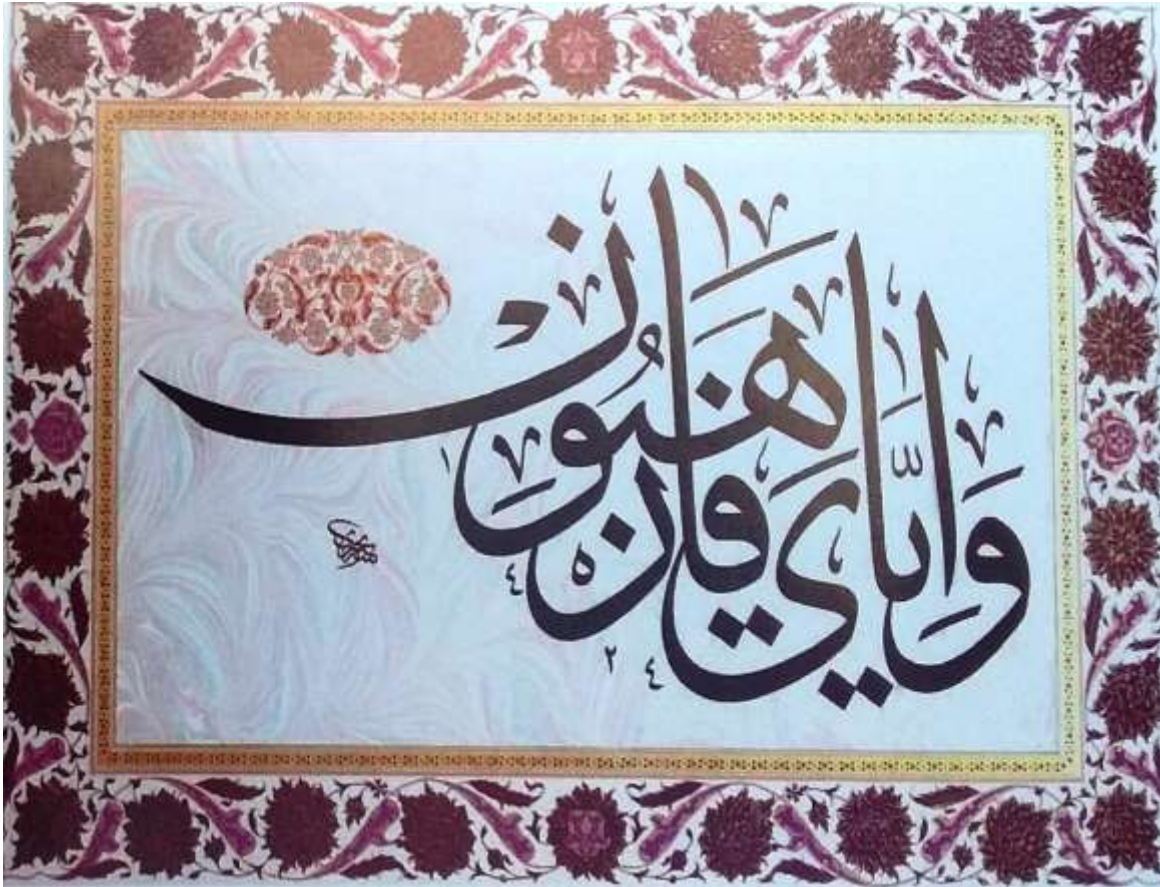 وَإِيَّايَ فَارْهَبُونِ